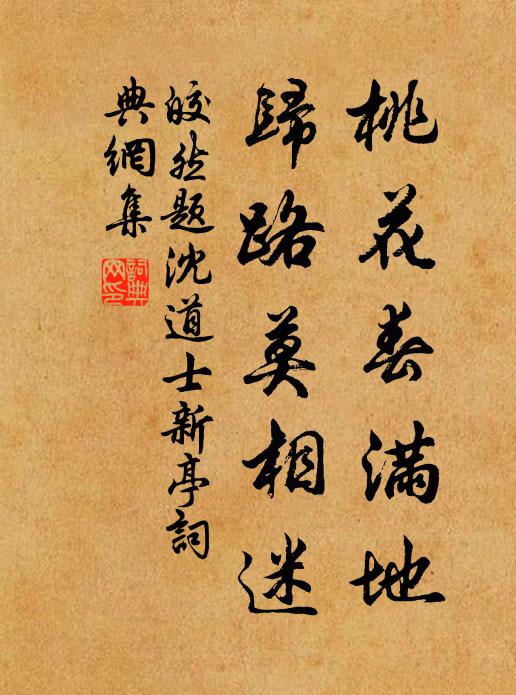 桃花春滿地
歸路莫相迷
皎然題沈道士新亭詞
典網集
詞典网印